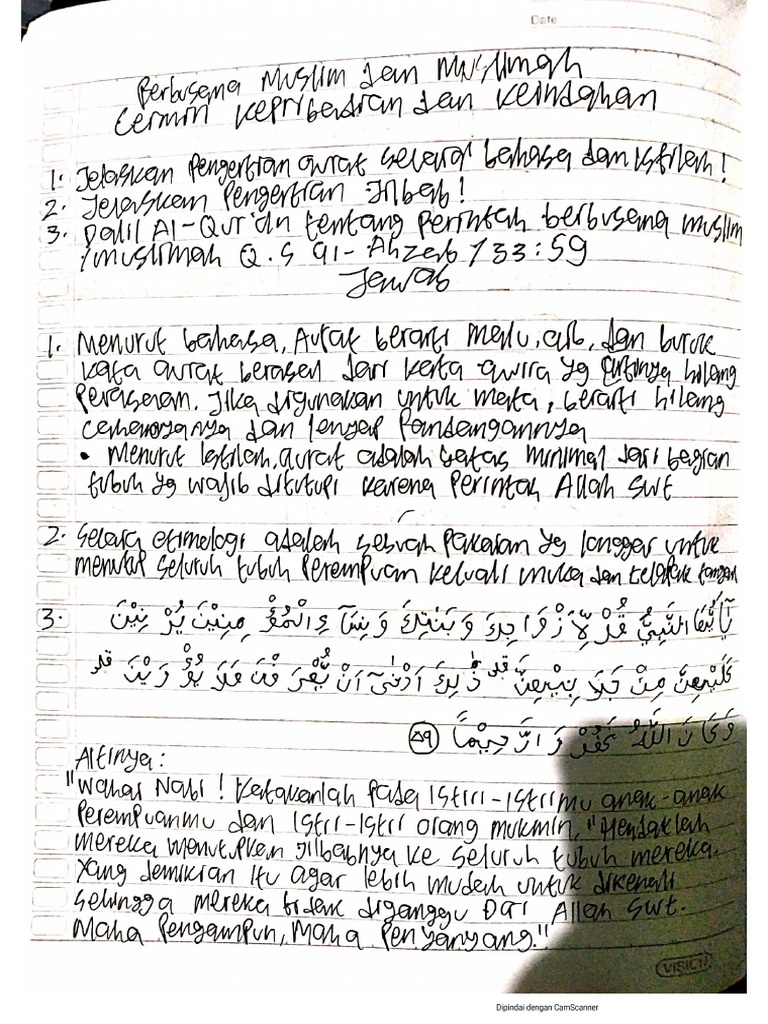 Date
Berbusana Muslim dan Muslimah
Cermin Kepribadian dan Keindahan
1. Jelaskan Pengertian aurat secara bahasa dan istilah!
2. Jelaskan Pengertian Jilbab!
3. Dalil Al-Qur'an tentang perintah berbusana muslim
/muslimah Q.S al-Ahzab /33:59
Jawab
1. Menurut bahasa, Aurat berarti malu, aib, dan buruk
kata aurat berasal dari kata awira yg artinya hilang
perasaan. Jika digunakan untuk mata, berarti hilang
cahayanya dan lenyap Pandangannya
• Menurut Istilah, aurat adalah batas minimal dari bagian
tubuh yg wajib ditutupi karena Perintah Allah swt
2. Secara etimologi adalah sebuah Pakaian yg longgar untuk
menutup seluruh tubuh Perempuan kecuali muka dan telapak tangan
3. يٰٓاَيُّهَا النَّبِيُّ قُلْ لِّاَزْوَاجِكَ وَبَنٰتِكَ وَنِسَاۤءِ الْمُؤْمِنِيْنَ يُدْنِيْنَ
عَلَيْهِنَّ مِنْ جَلَابِيْبِهِنَّۗ ذٰلِكَ اَدْنٰىٓ اَنْ يُّعْرَفْنَ فَلَا يُؤْذَيْنَۗ
وَكَانَ اللّٰهُ غَفُوْرًا رَّحِيْمًا ٥٩
Artinya:
"Wahai Nabi! Katakanlah pada istiri-istrimu anak-anak
Perempuanmu dan Istri-Istri orang mukmin, "Hendaklah
mereka menutupkan Jilbabnya ke seluruh tubuh mereka.
Yang demikian itu agar lebih mudah untuk dikenali
sehingga mereka tidak diganggu Dan Allah swt.
Maha Pengampun, Maha Penyanyang."
VISION
Dipindai dengan CamScanner